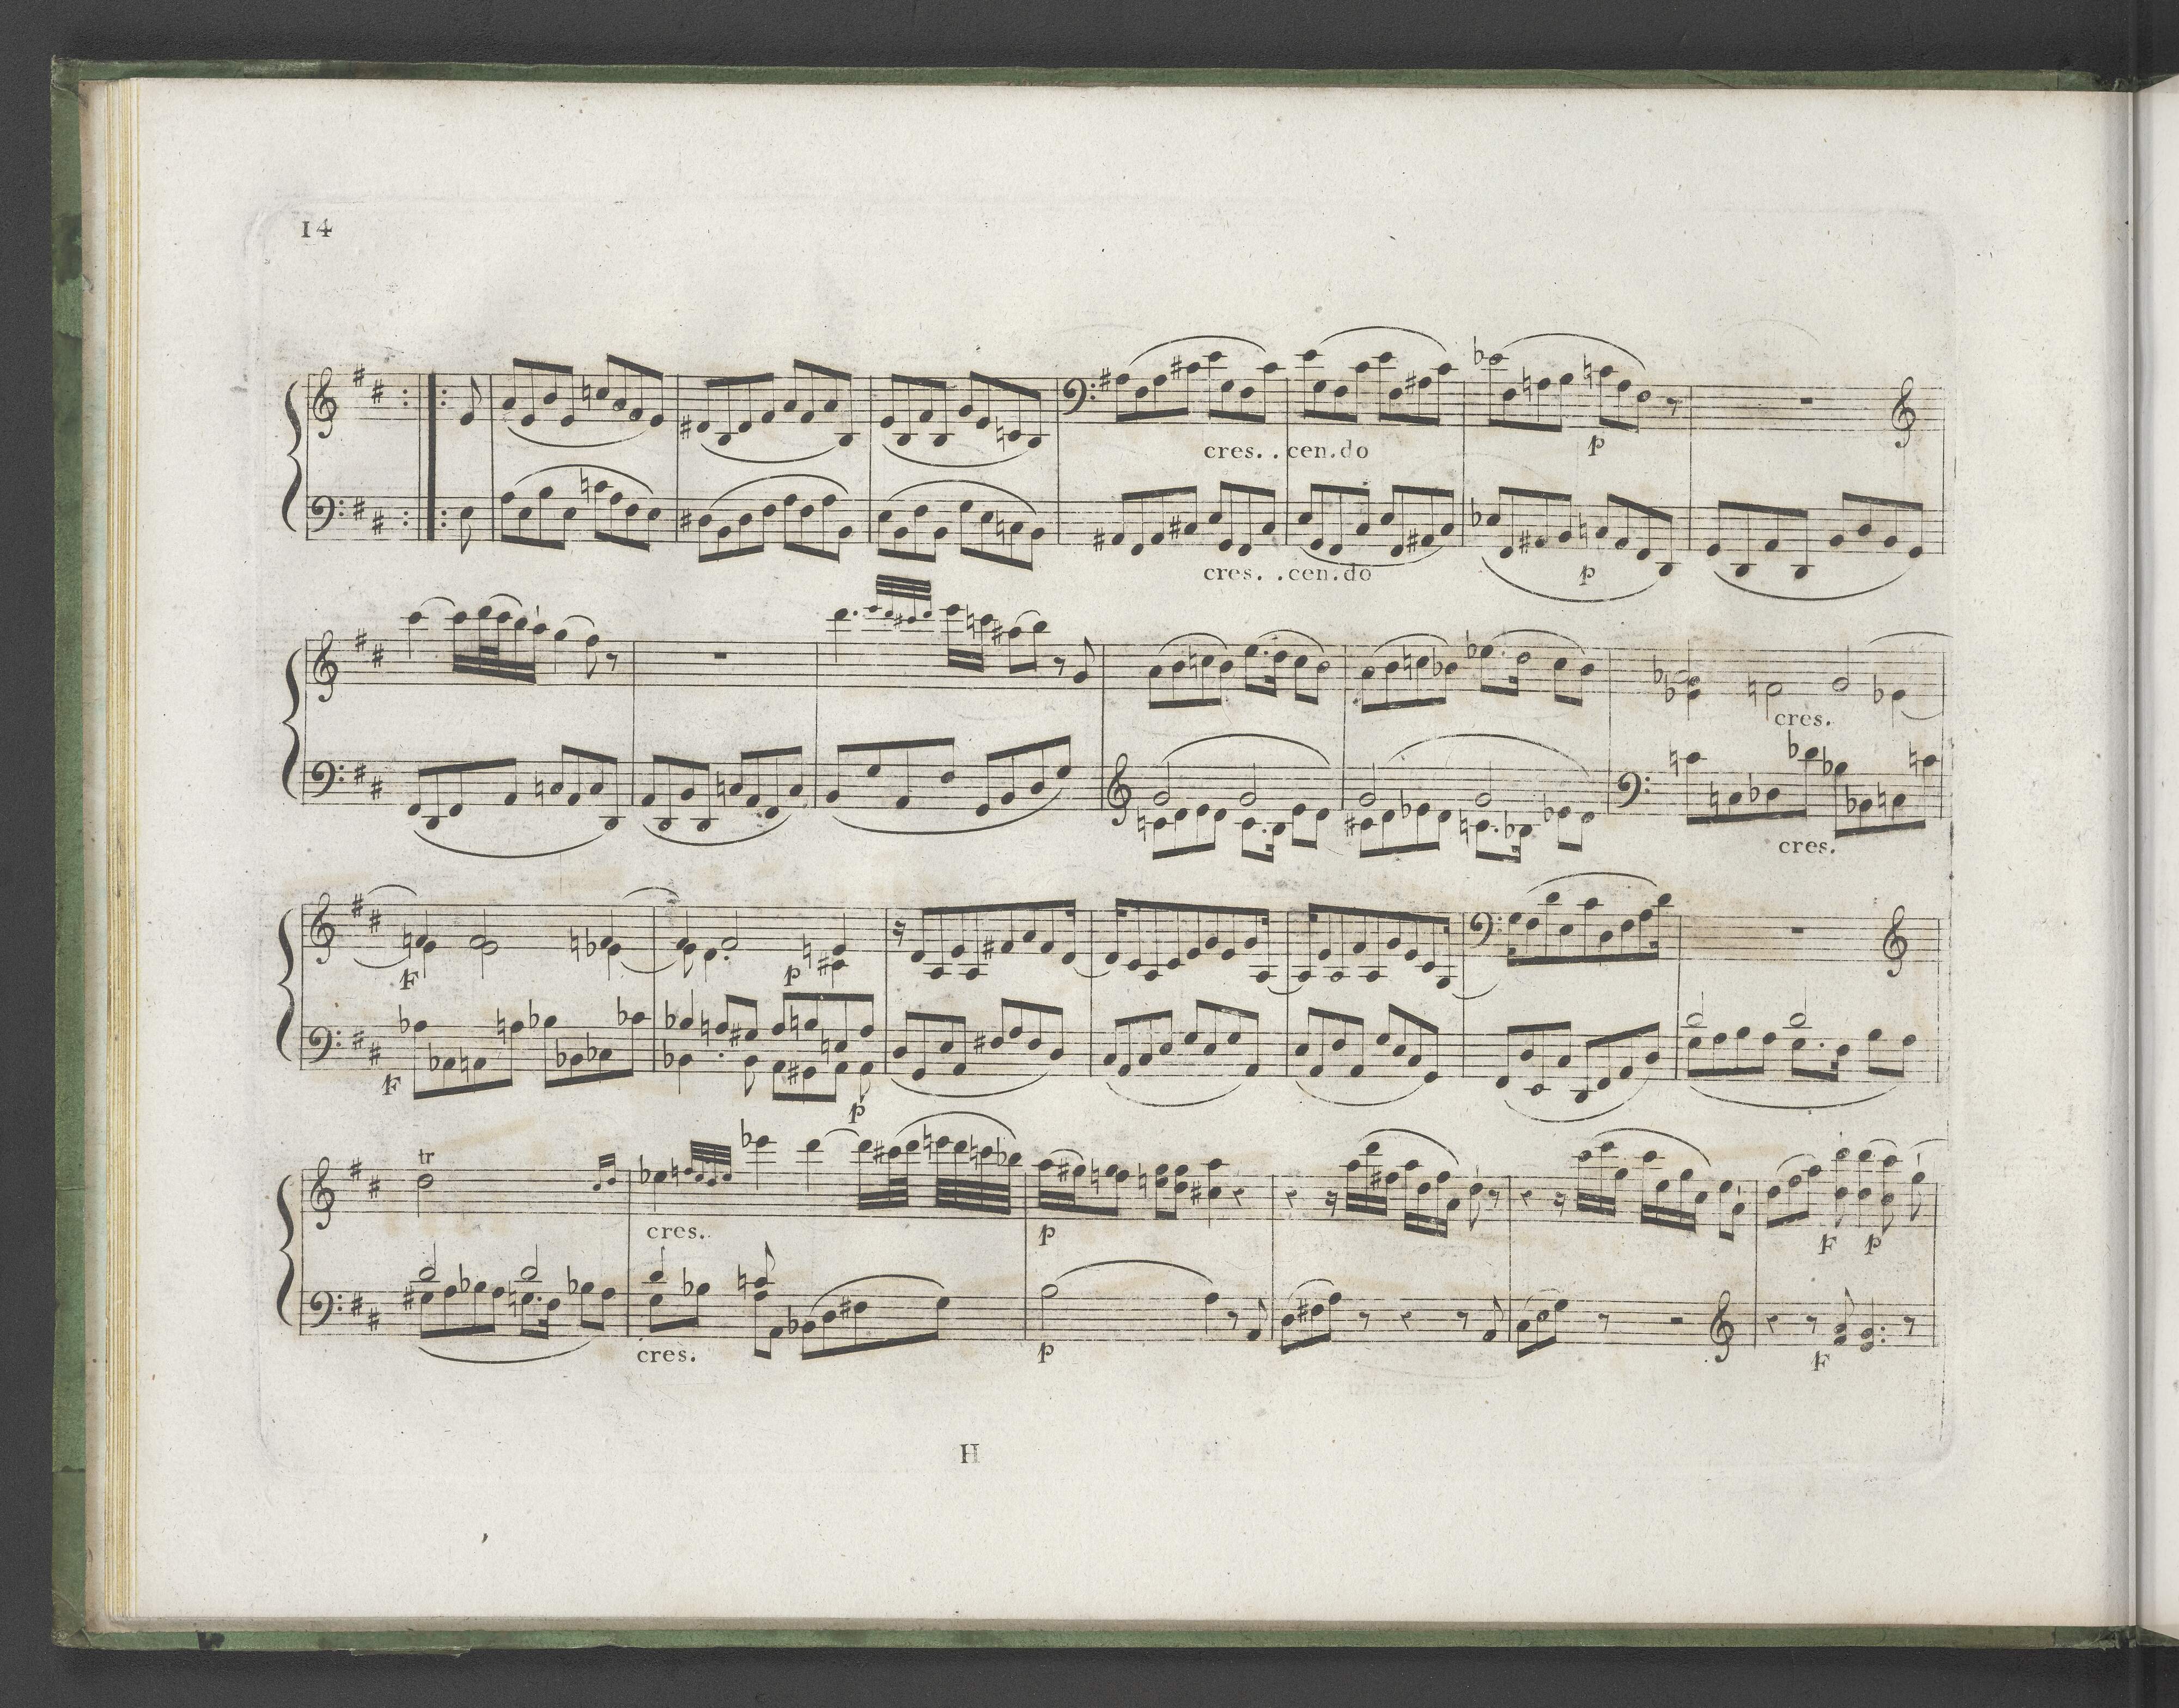 14
cres. . cen. do p
cres. . cen. do p
cres.
cres.
F p
F p
tr
cres. p F p
cres. p F
H